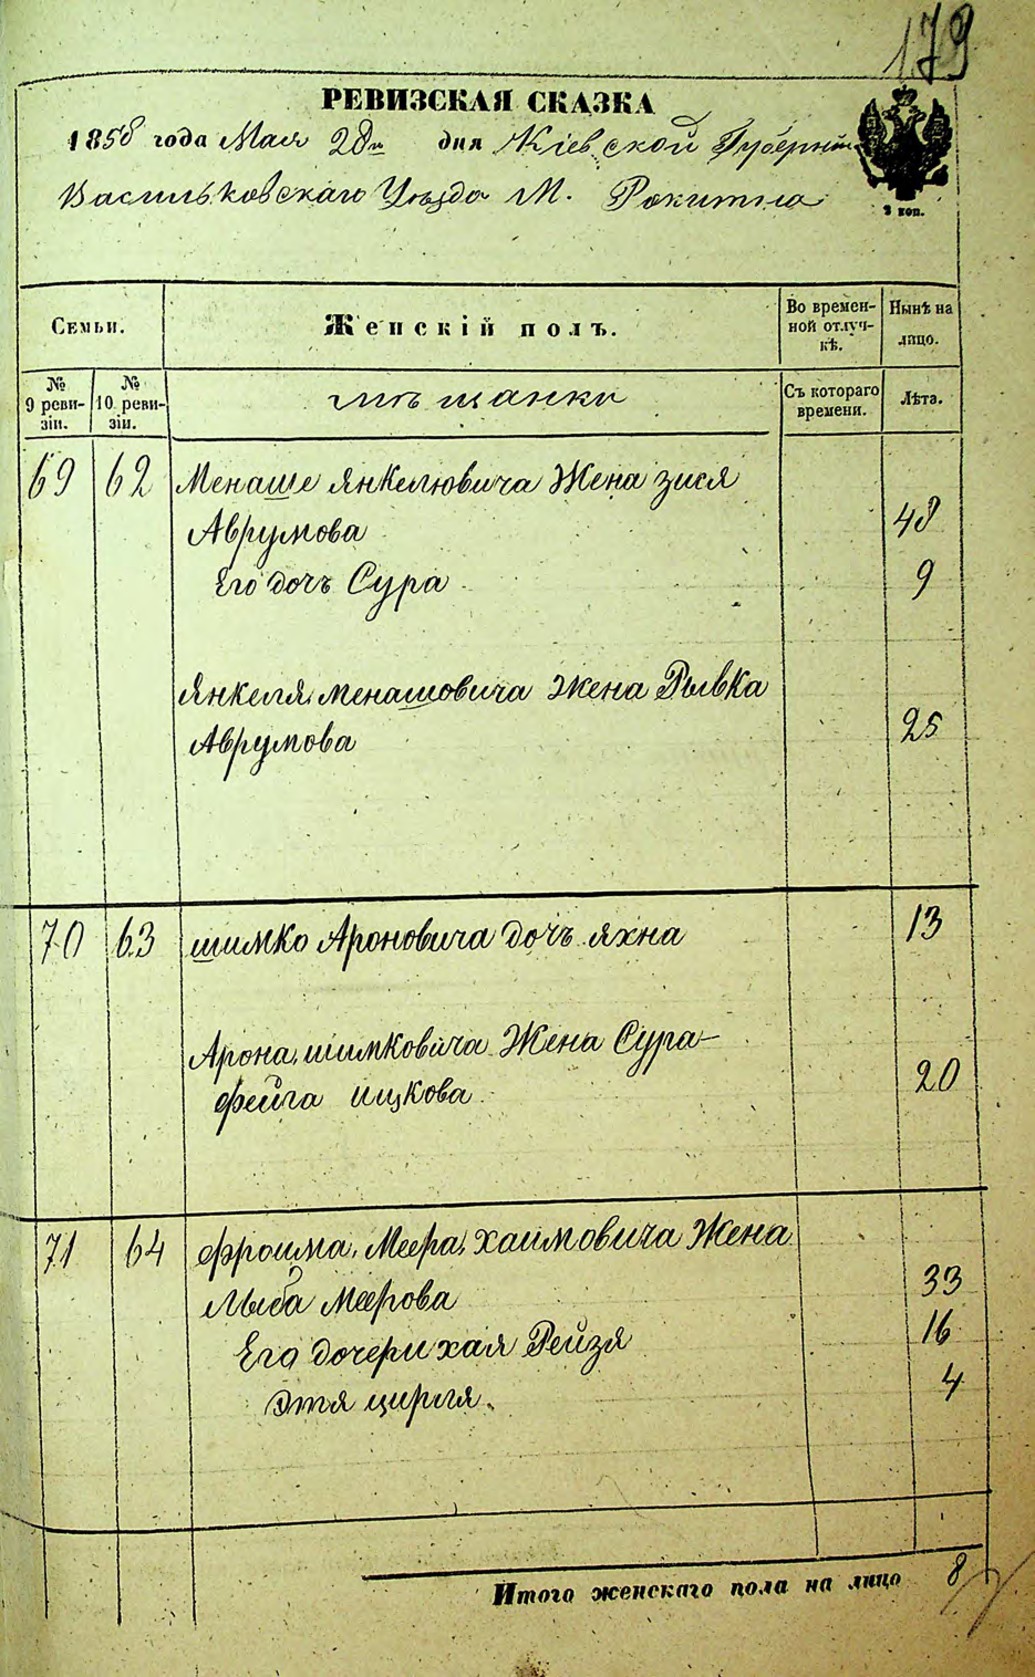 179
РЕВИЗСКАЯ СКАЗКА
1858 года Мая 28го дня Кіевской Губерніи
Васильковскаго Уѣзда М. Рокитна
3 коп.
Семьи. Женскій полъ. Во времен- Нынѣ на
ной отлуч- лицо.
кѣ.
№ № мѣщанки Съ котораго Лѣта.
9 реви- 10 реви- времени.
зіи. зіи.
69 62 Менаше Янкелювича Жена Зися
Аврумова 48
Его дочъ Сура 9
Янкеля Менашовича Жена Рывка
Аврумова 25
70 63 Шимко Ароновича дочъ Яхна 13
Арона Шимковича Жена Сура-
Фейга Ицкова 20
71 64 Фроима Меера Хаимовича Жена
Лыба Меерова 33
Его дочери Хая Рейзя 16
Этя Цирля 4
Итого женскаго пола на лицо 8